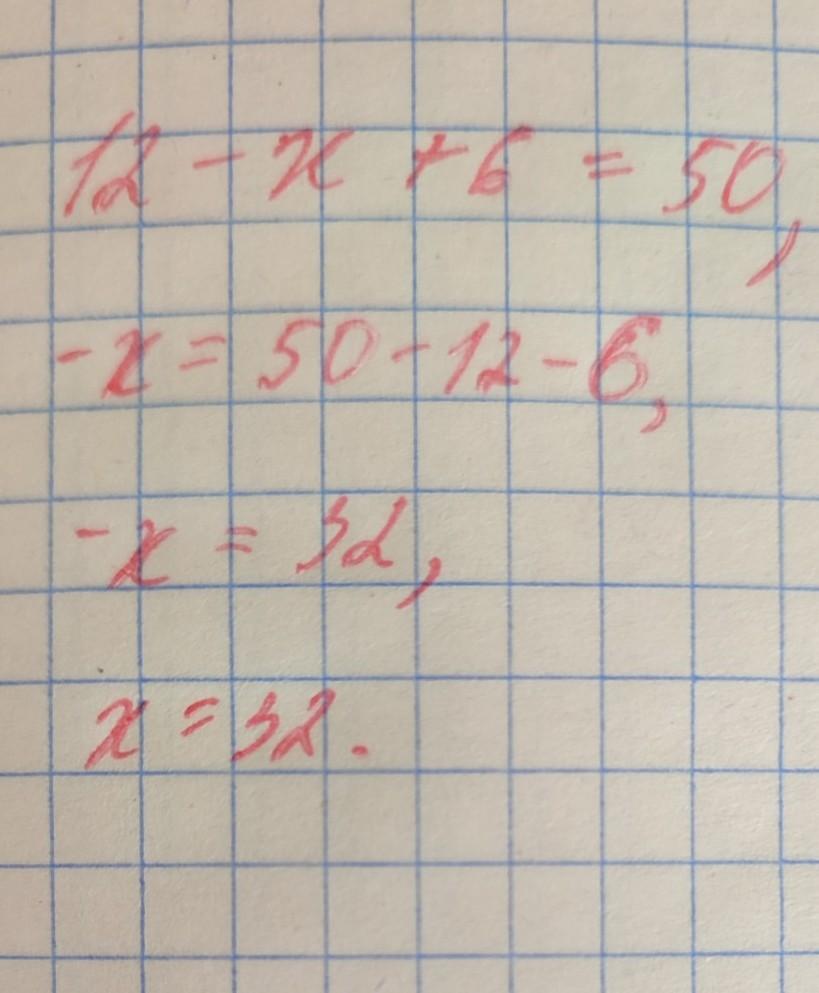 12 - x + 6 = 50,
-x = 50 - 12 - 6,
-x = 32,
x = 32.